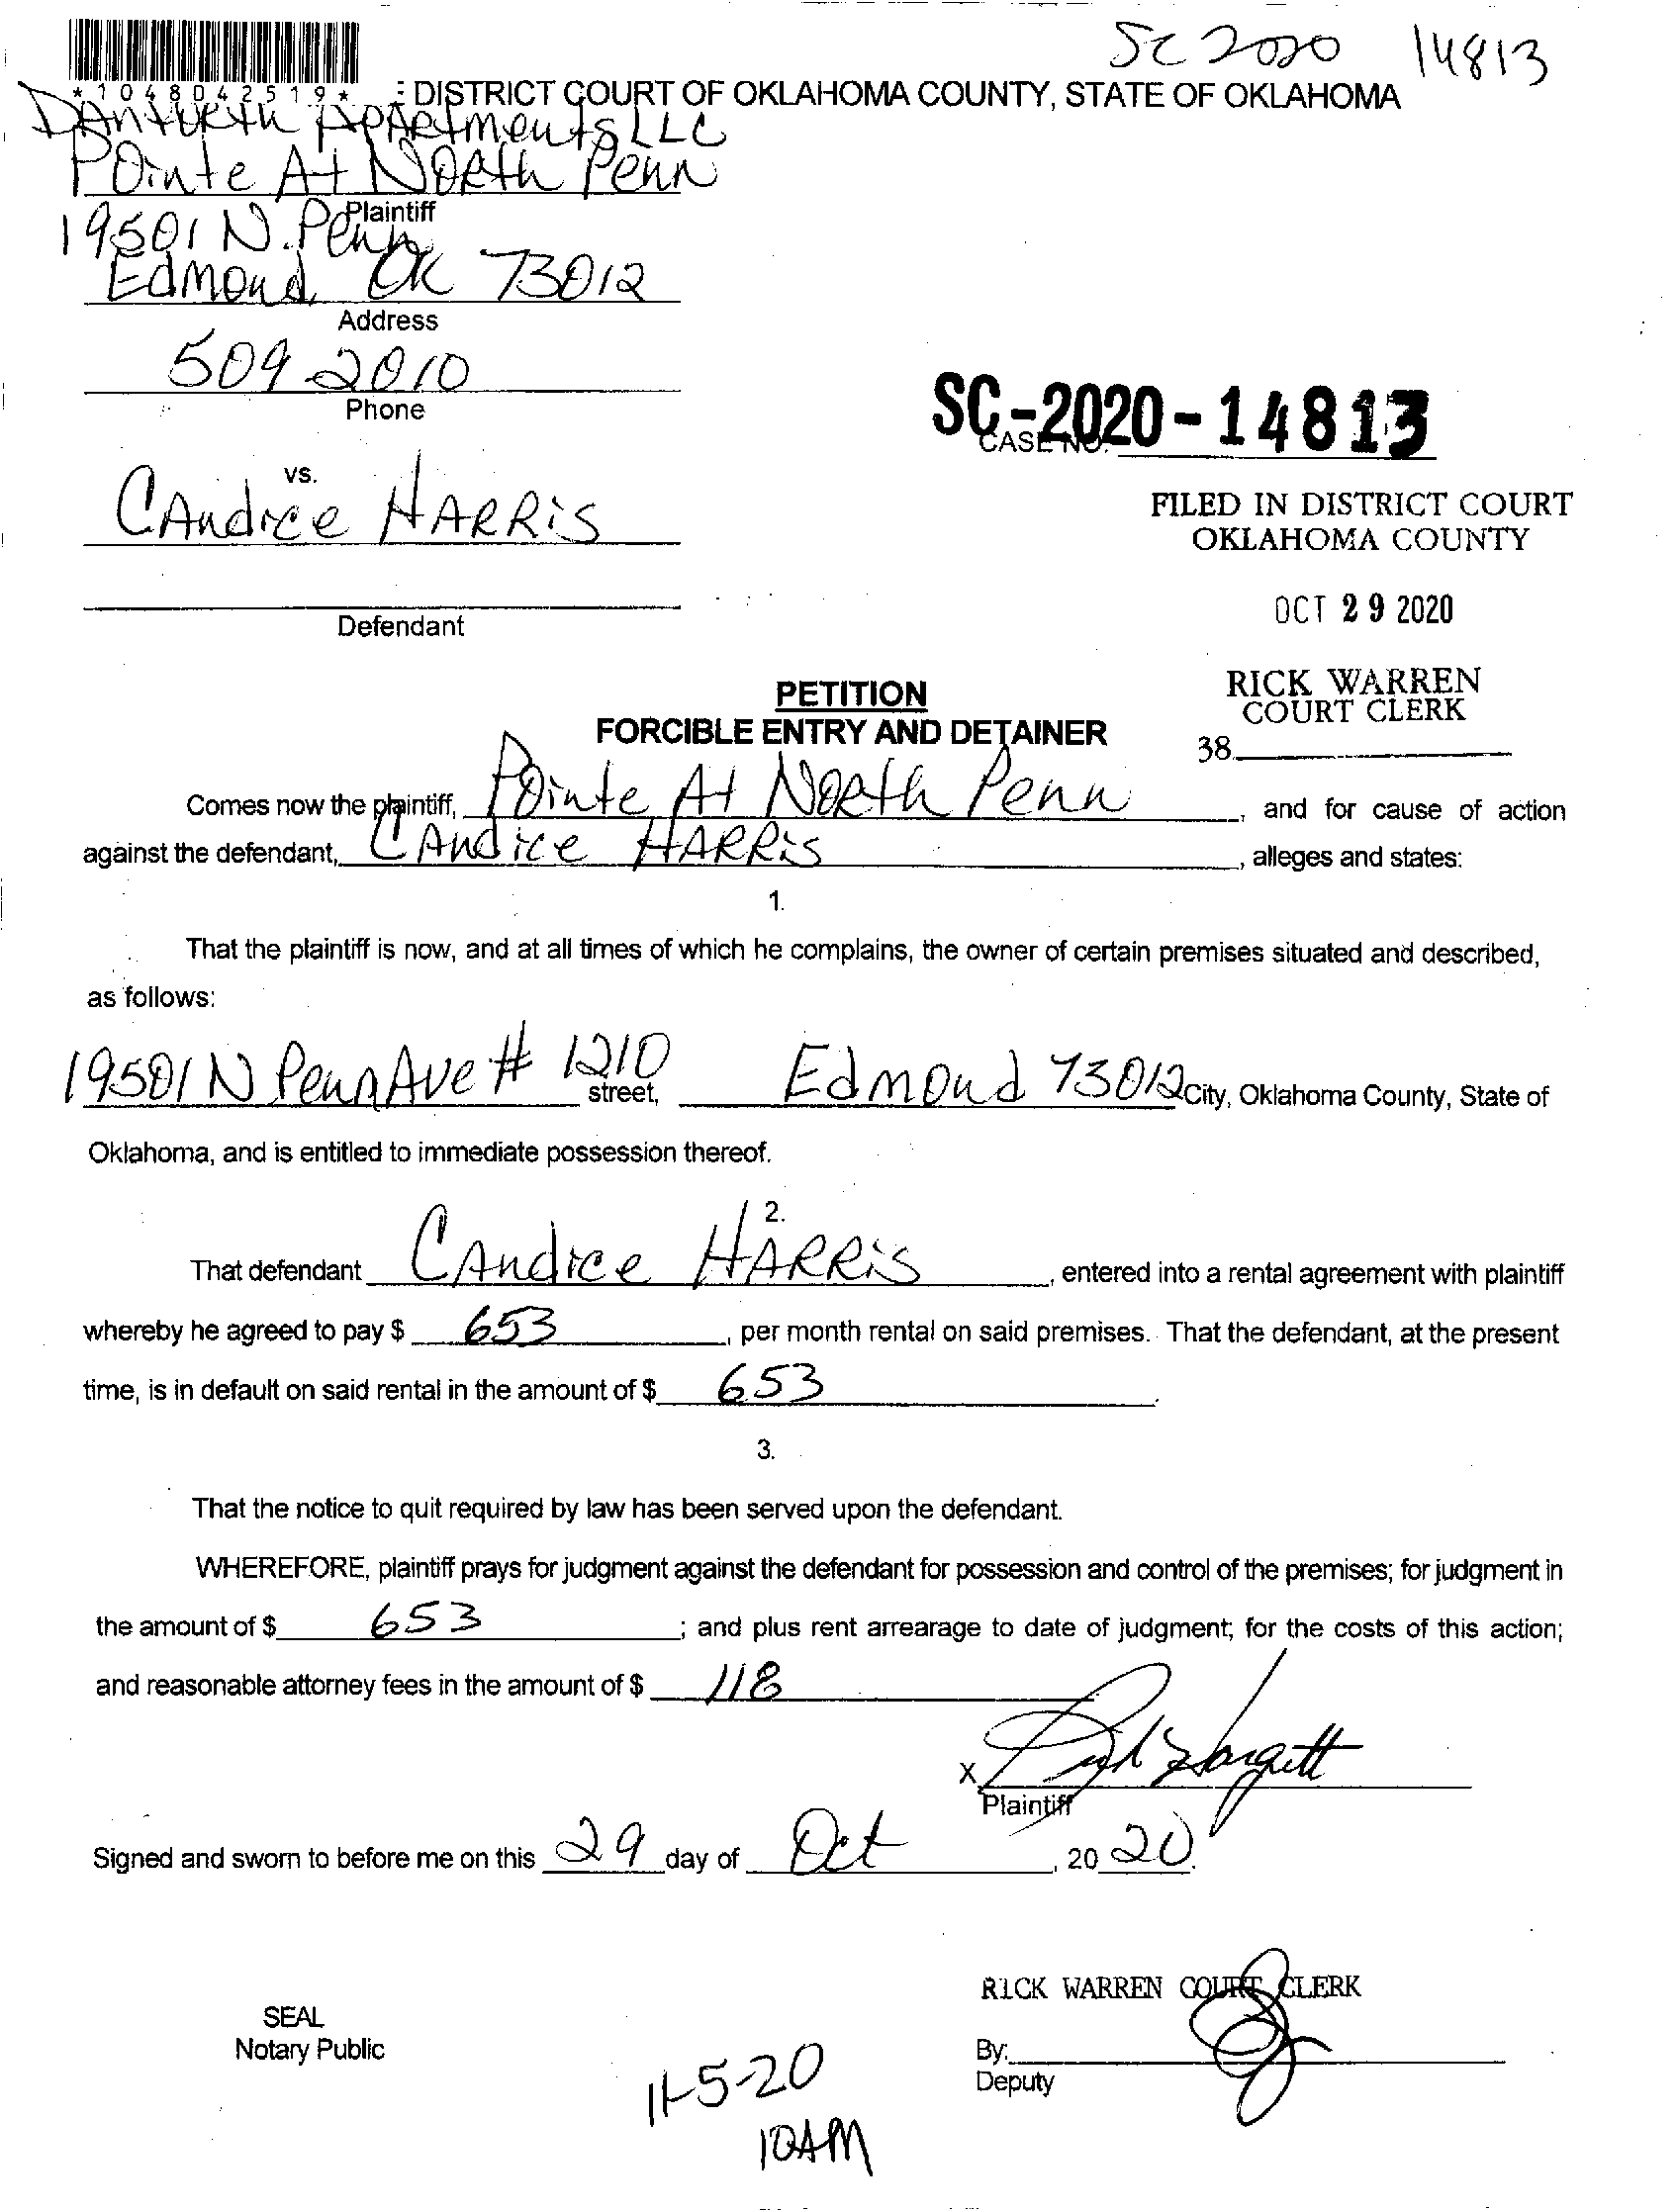 SC 2020 14813
*1048042519*
DISTRICT COURT OF OKLAHOMA COUNTY, STATE OF OKLAHOMA
Apartments LLC
Pointe At North Penn
Plaintiff
19501 N. Penn
Edmond, OK 73012
Address
509 2010
Phone
SC-2020-14813
CASE NO.
vs.
Candice Harris
FILED IN DISTRICT COURT
OKLAHOMA COUNTY
OCT 29 2020
Defendant
RICK WARREN
COURT CLERK
38
PETITION
FORCIBLE ENTRY AND DETAINER
Comes now the plaintiff, Pointe At North Penn, and for cause of action
against the defendant, Candice Harris, alleges and states:
1.
That the plaintiff is now, and at all times of which he complains, the owner of certain premises situated and described,
as follows:
19501 N Penn Ave # 1210 street, Edmond 73012 City, Oklahoma County, State of
Oklahoma, and is entitled to immediate possession thereof.
2.
That defendant Candice Harris, entered into a rental agreement with plaintiff
whereby he agreed to pay $ 653, per month rental on said premises. That the defendant, at the present
time, is in default on said rental in the amount of $ 653.
3.
That the notice to quit required by law has been served upon the defendant.
WHEREFORE, plaintiff prays for judgment against the defendant for possession and control of the premises; for judgment in
the amount of $ 653; and plus rent arrearage to date of judgment; for the costs of this action;
and reasonable attorney fees in the amount of $ 118
X
Plaintiff
Signed and sworn to before me on this 29 day of Oct, 20 20.
RICK WARREN COURT CLERK
SEAL
Notary Public
By:
Deputy
11-5-20
10AM